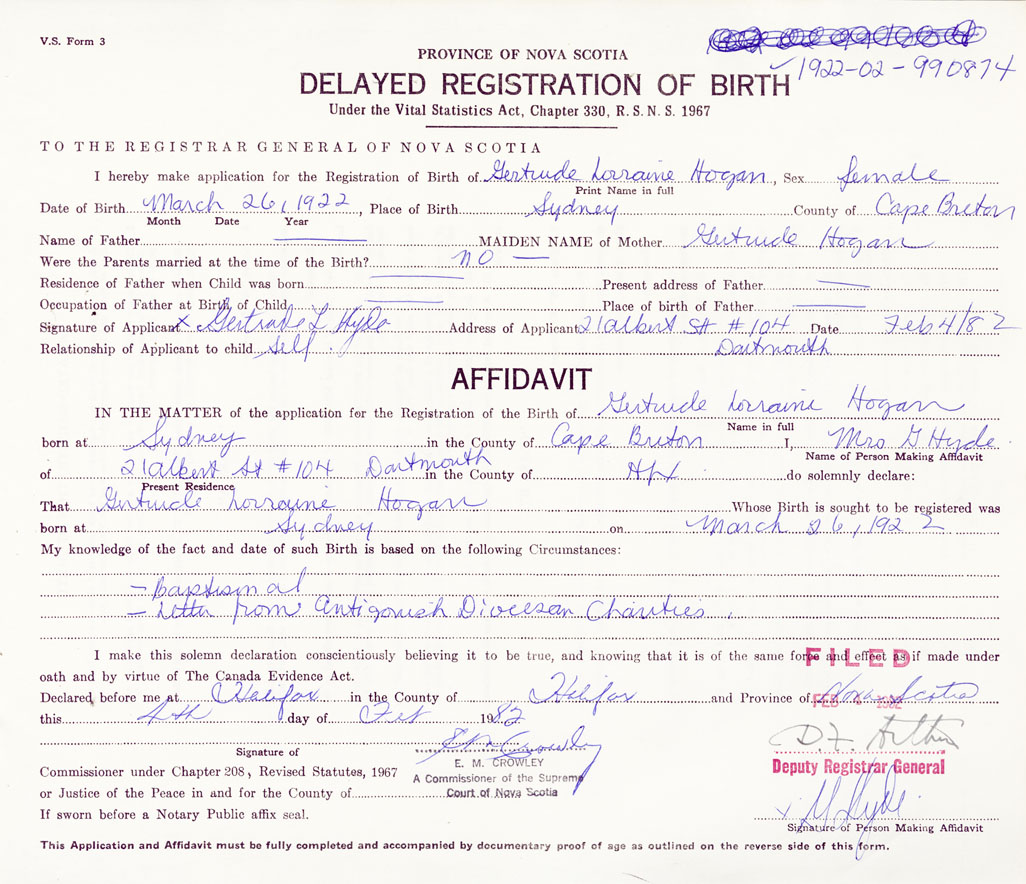 V.S. Form 3
PROVINCE OF NOVA SCOTIA
1922-02-990874
DELAYED REGISTRATION OF BIRTH
Under the Vital Statistics Act, Chapter 330, R. S. N. S. 1967
TO THE REGISTRAR GENERAL OF NOVA SCOTIA
I hereby make application for the Registration of Birth of Gertrude Lorraine Hogan, Sex female
Print Name in full
Date of Birth March 26, 1922, Place of Birth Sydney County of Cape Breton
Month Date Year
Name of Father MAIDEN NAME of Mother Gertrude Hogan
Were the Parents married at the time of the Birth? NO —
Residence of Father when Child was born Present address of Father
Occupation of Father at Birth of Child Place of birth of Father
Signature of Applicant x Gertrude L Hyde Address of Applicant 21 Albert St # 104 Date Feb 4/82
Relationship of Applicant to child Self. Dartmouth
AFFIDAVIT
IN THE MATTER of the application for the Registration of the Birth of Gertrude Lorraine Hogan
Name in full
born at Sydney in the County of Cape Breton I, Mrs G Hyde
Name of Person Making Affidavit
of 21 Albert St # 104 Dartmouth in the County of Hfx do solemnly declare:
Present Residence
That Gertrude Lorraine Hogan Whose Birth is sought to be registered was
born at Sydney on March 26, 1922
My knowledge of the fact and date of such Birth is based on the following Circumstances:
- Baptismal
- Letter from Antigonish Diocesan Charities.
I make this solemn declaration conscientiously believing it to be true, and knowing that it is of the same force and effect as if made under
FILED
oath and by virtue of The Canada Evidence Act.
Declared before me at Halifax in the County of Halifax and Province of Nova Scotia
FEB 4 1982
this 4th day of Feb 1982
D. F. Arthur
Signature of
E M Crowley
E. M. CROWLEY
Deputy Registrar General
Commissioner under Chapter 208, Revised Statutes, 1967
A Commissioner of the Supreme
or Justice of the Peace in and for the County of
Court of Nova Scotia
x G Hyde
If sworn before a Notary Public affix seal.
Signature of Person Making Affidavit
This Application and Affidavit must be fully completed and accompanied by documentary proof of age as outlined on the reverse side of this form.